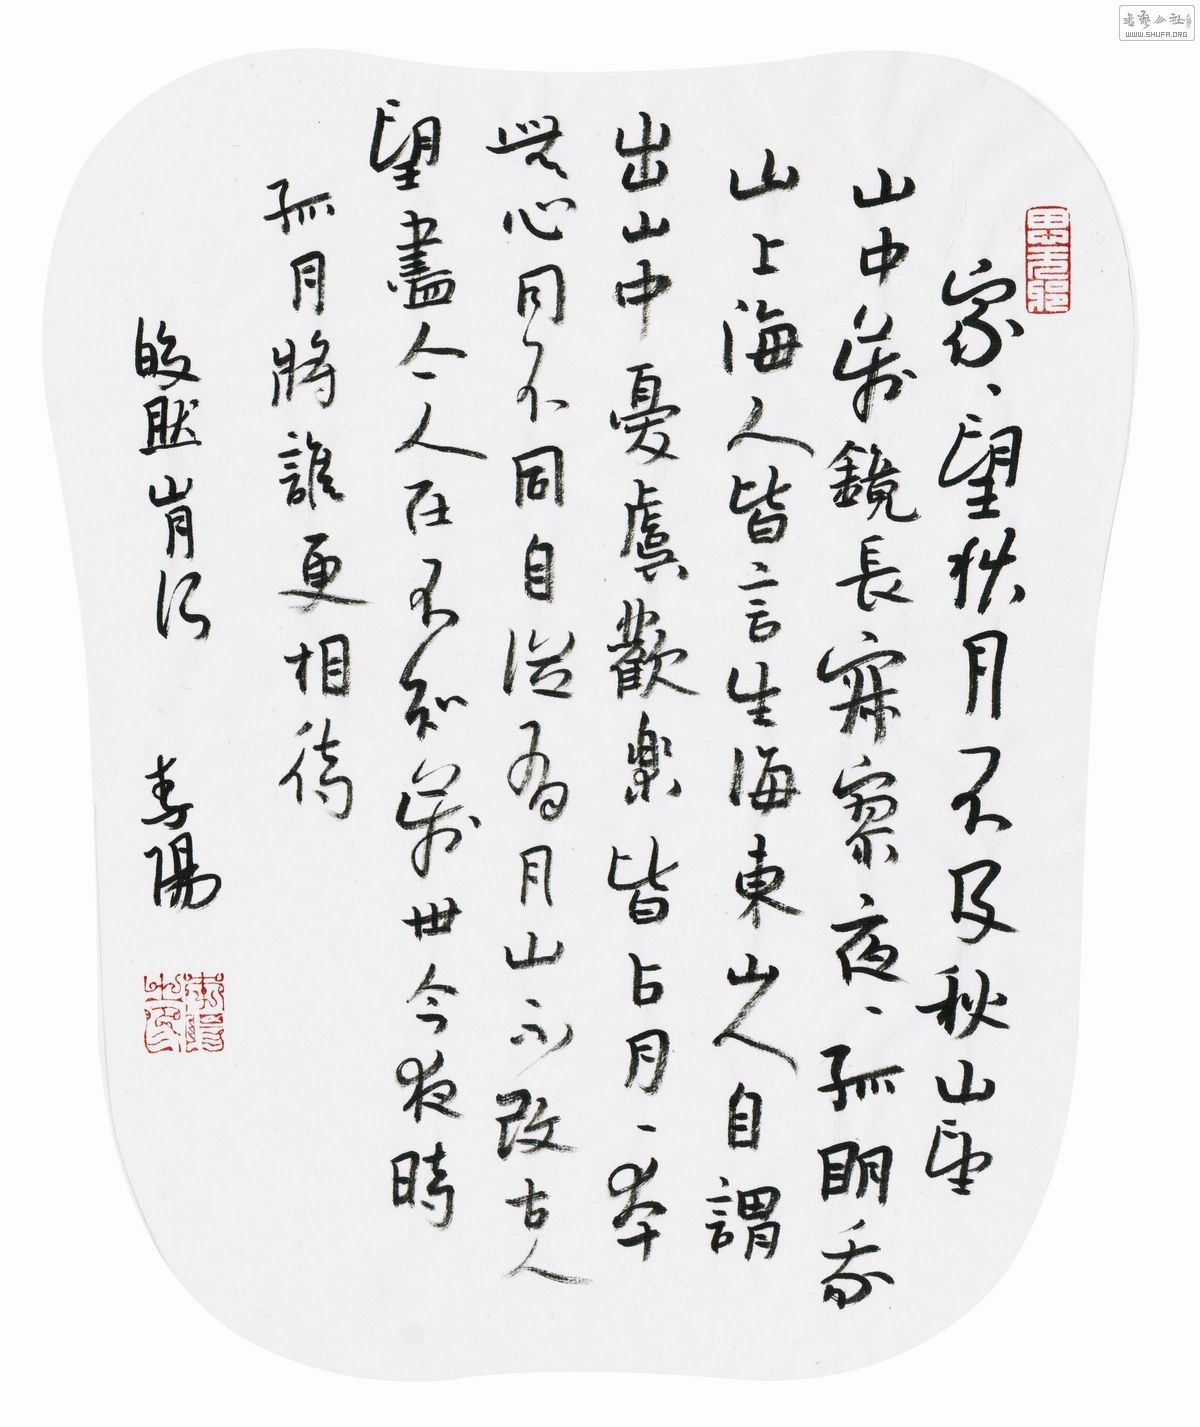 家、望秋月不及秋山望
山中萬鏡長寂寥夜、孤明我
山上海人皆言生海東山人自謂
出山中憂虞歡楽皆占月、本
無心同不同自從有月山不改古人
望盡今人在不知萬世今夜時
孤月將誰更相待
皎然山月行 李陽
书艺公社
WWW.SHUFA.ORG